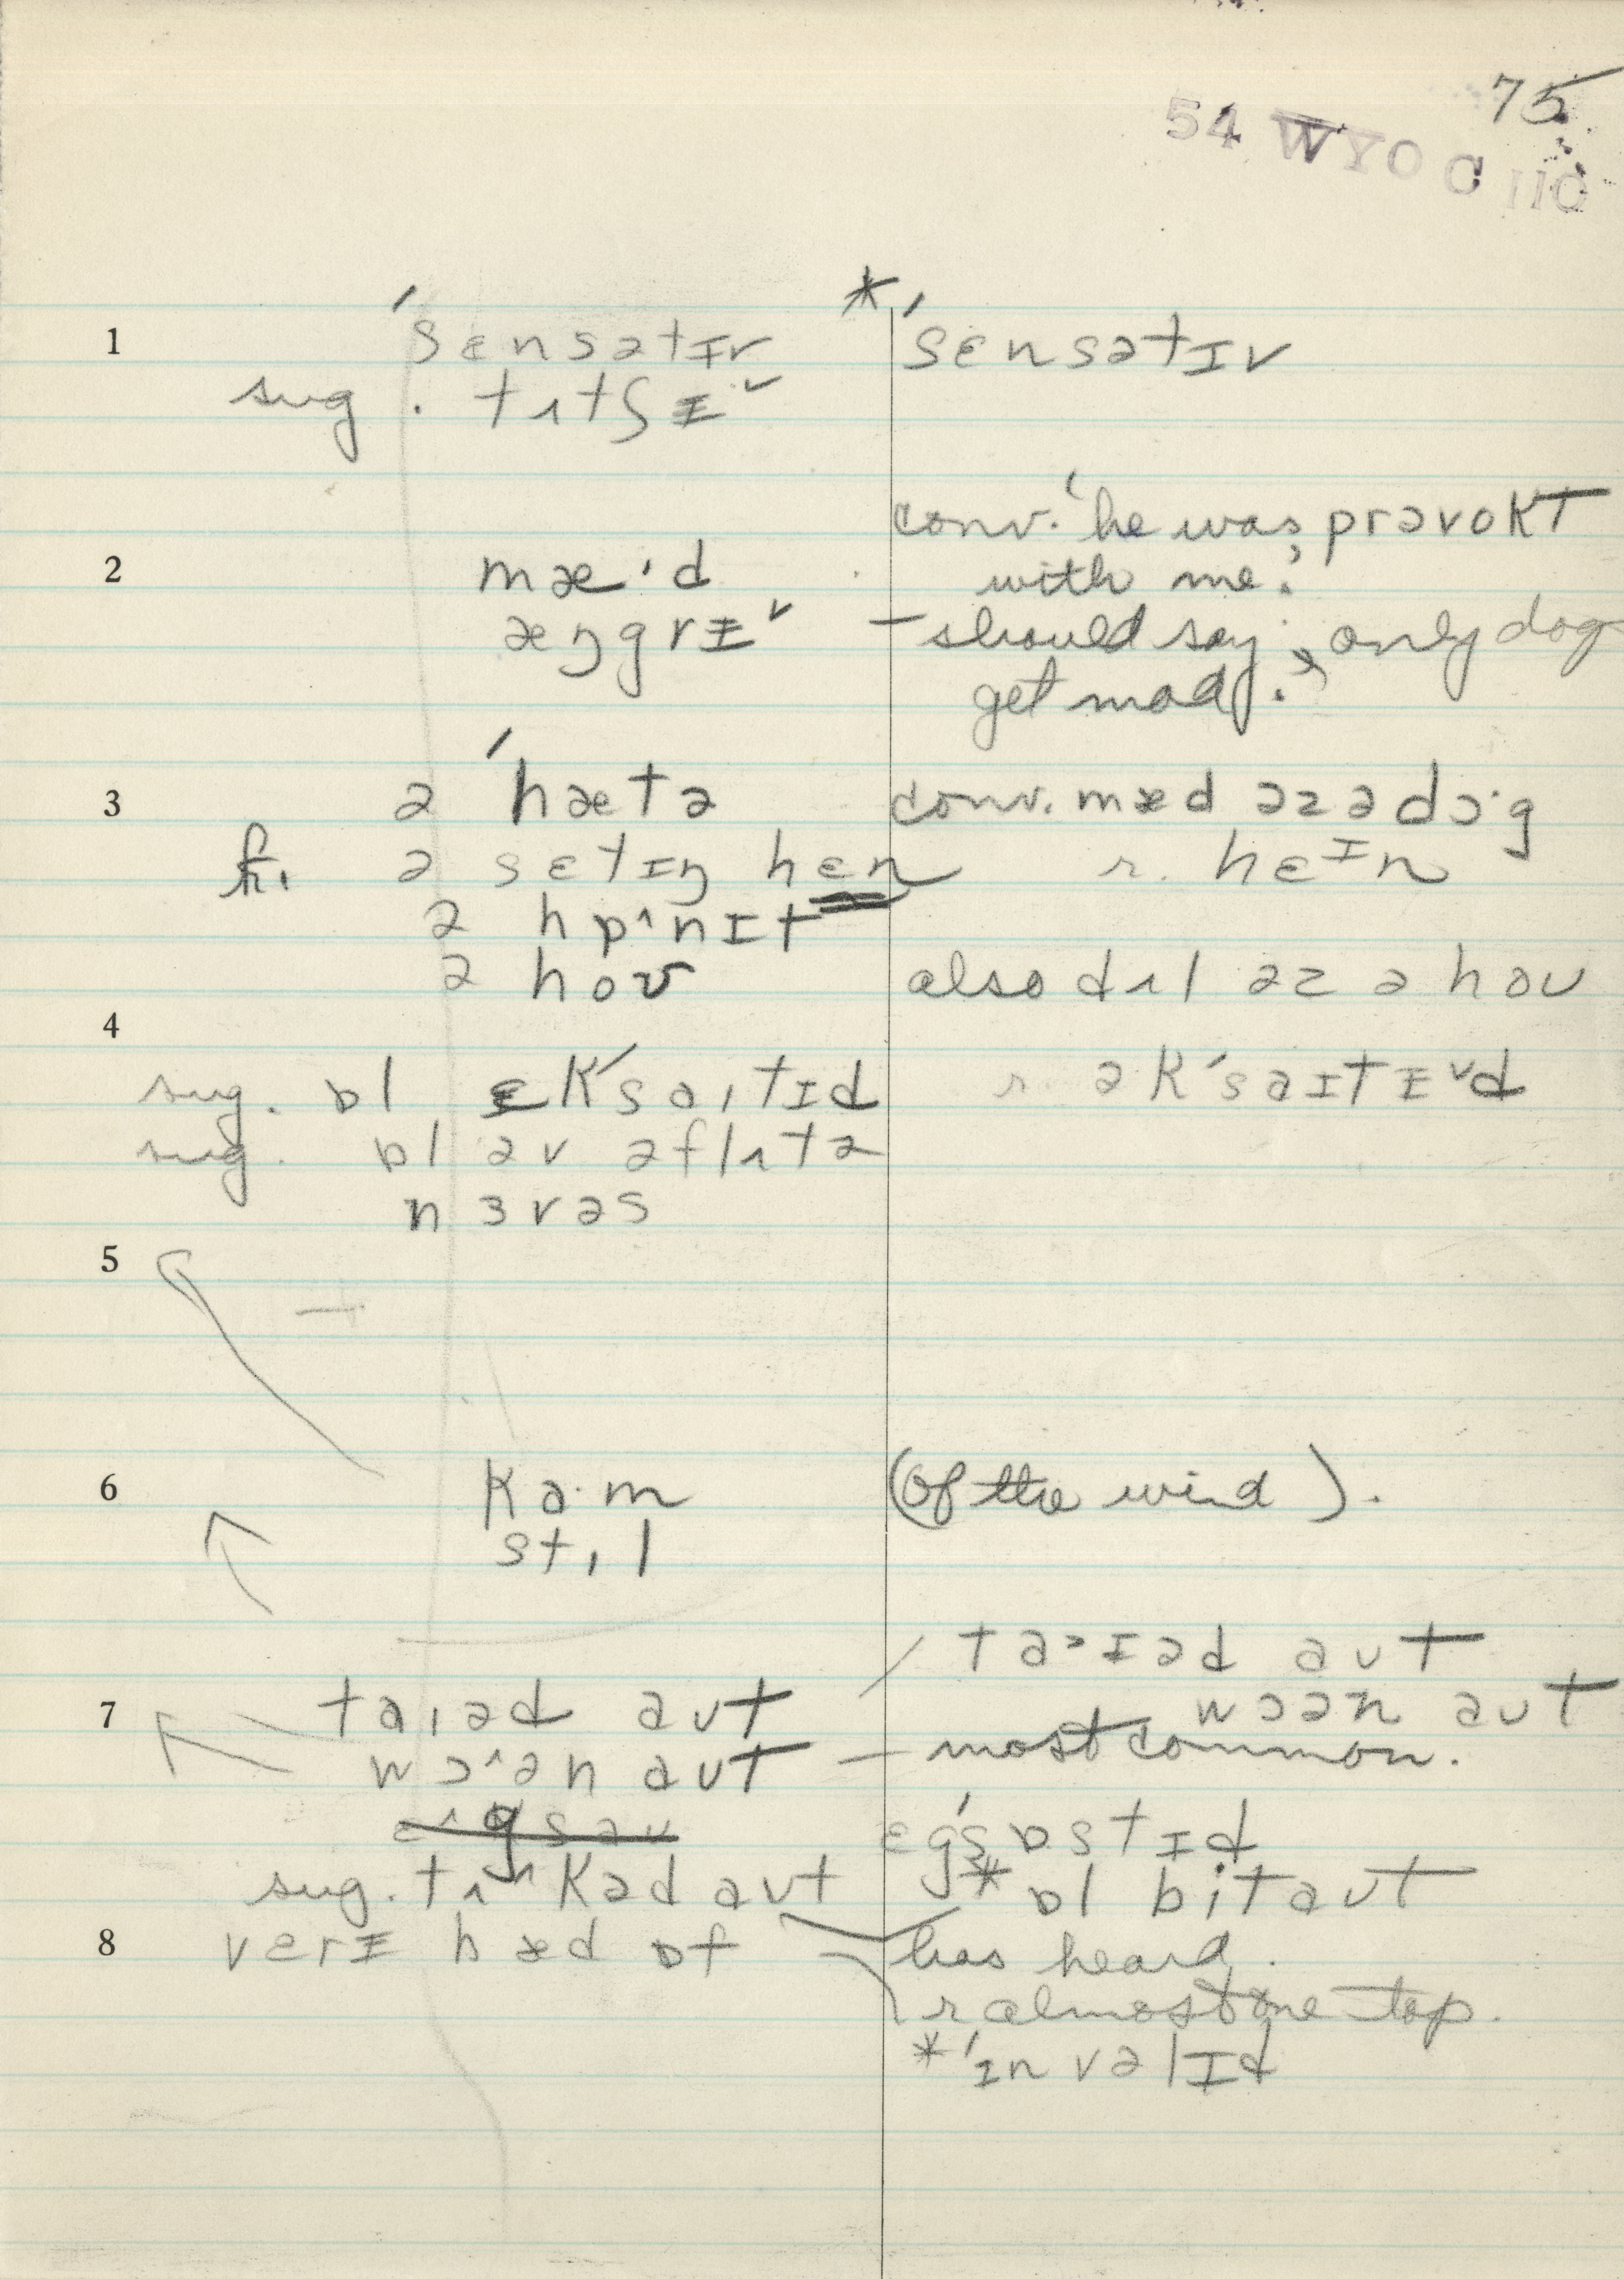 75
54 WYO C 110
1 ˈsɛnsətɪv * ˈsɛnsətɪv
sug. tʌtʃɪˇ
conv. 'he was prəvokt
2 mæ·d with me.'
æŋgrɪˇ – should say, only dogs
get mad.
3 ə ˈhætə conv. mæd əz ə dɔ·g
fr. ə sɛtɪŋ hɛn r. hɛᴵn
ə hɒ^nɪt
ə hoʊ also dʌl əz ə hoʊ
4
sug. ɒl ɛkˈsaɪtɪd r. əkˈsaɪtɪˇd
sug. ɒl əv əflʌtə
nɜvəs
5
6 ka·m (of the wind).
stɪl
ta˃ɪəd aʊt
7 taɪəd aʊt wɔən aʊt
wɔ^ən aʊt – most common.
ɛgˈzɒstɪd
sug. tʌkəd aʊt * ɒl bit aʊt
8 vɛrɪ hæd ɒf has heard.
r almost one tap.
* ˈɪnvəlɪd